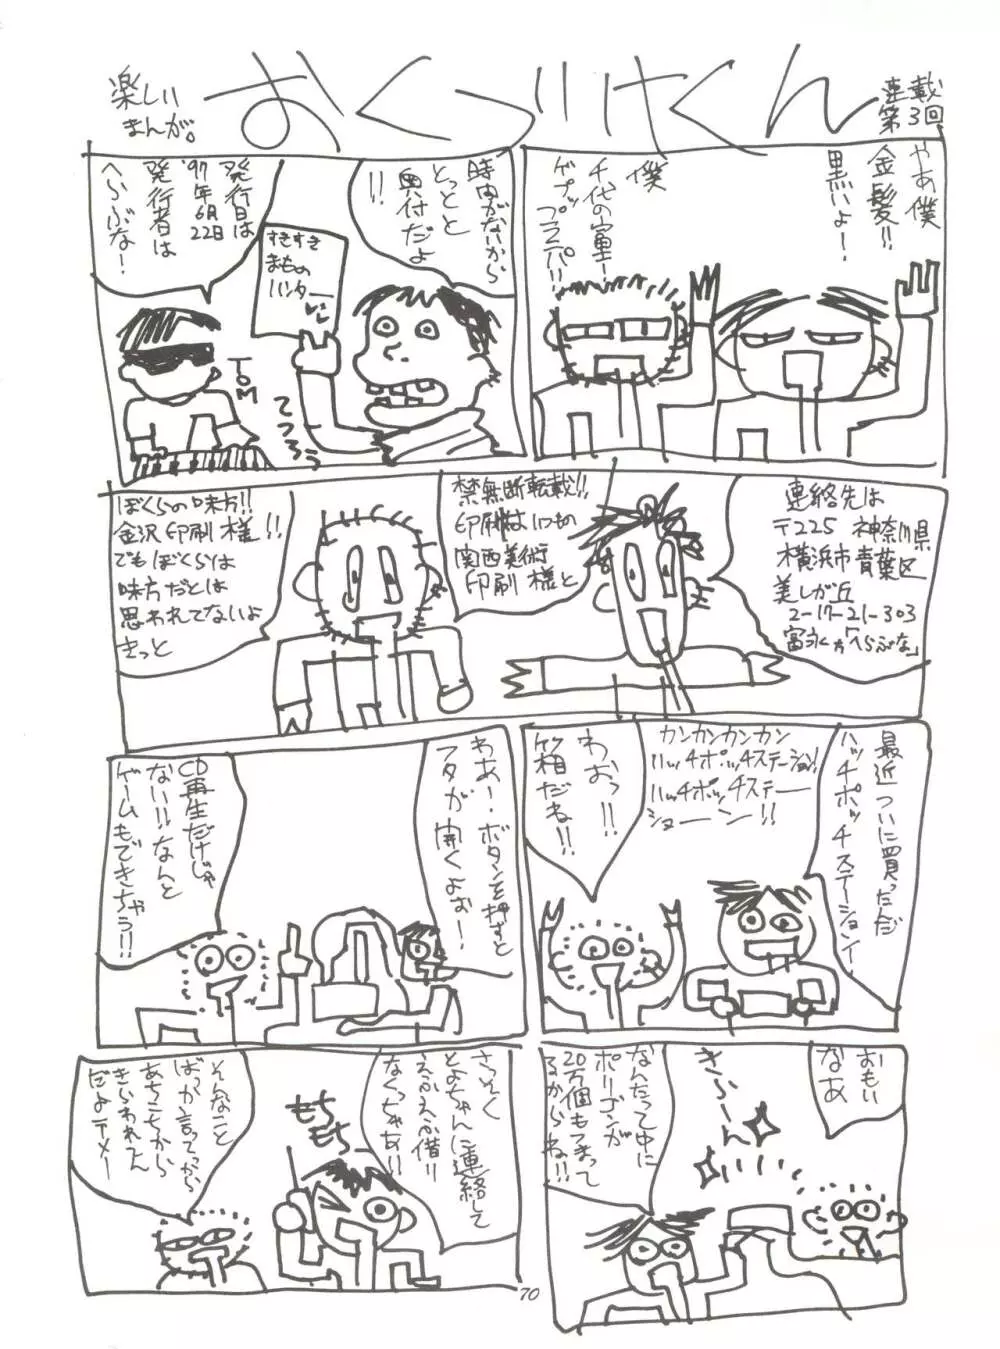 楽しい
まんが。
おくづけくん
連載
第3回
やあ僕
金髪!!
黒いよ!
僕
千代の富士!
ゲプップププパ!!
時間がないから
とっとと
奥付だよ
!!
すきすき
まもの
ハンター
発行日は
'97年6月22日
発行者は
へらぶな!
TOM
てつろう
連絡先は
〒225 神奈川県
横浜市青葉区
美しが丘
2-17-21-303
富永方「へらぶな」
禁無断転載!!
印刷はいつもの
関西美術
印刷様と
ぼくらの味方!!
金沢印刷様!!
でもぼくらは
味方だとは
思われてないよ
きっと
最近ついに買っただ
ハッチポッチステーションイ
カンカンカンカン
ハッチポッチステーション!
ハッチポッチステー
ショーン!!
わおっ!!
箱だね!!
わあー、ボタンを押すと
フタが開くよぉー!
CD再生だけじゃ
ない!!なんと
ゲームもできちゃう!!
おもい
なあ
きらーん
なんたって中に
ポーリゴンが
20万個もつまって
るからね!!
さっそく
とよちゃんに連絡して
えふえふ借り
なくっちゃあ!!
もち
もち
そんなこと
ばっか言ってっから
あちこちから
きらわれてん
だよテメー
70